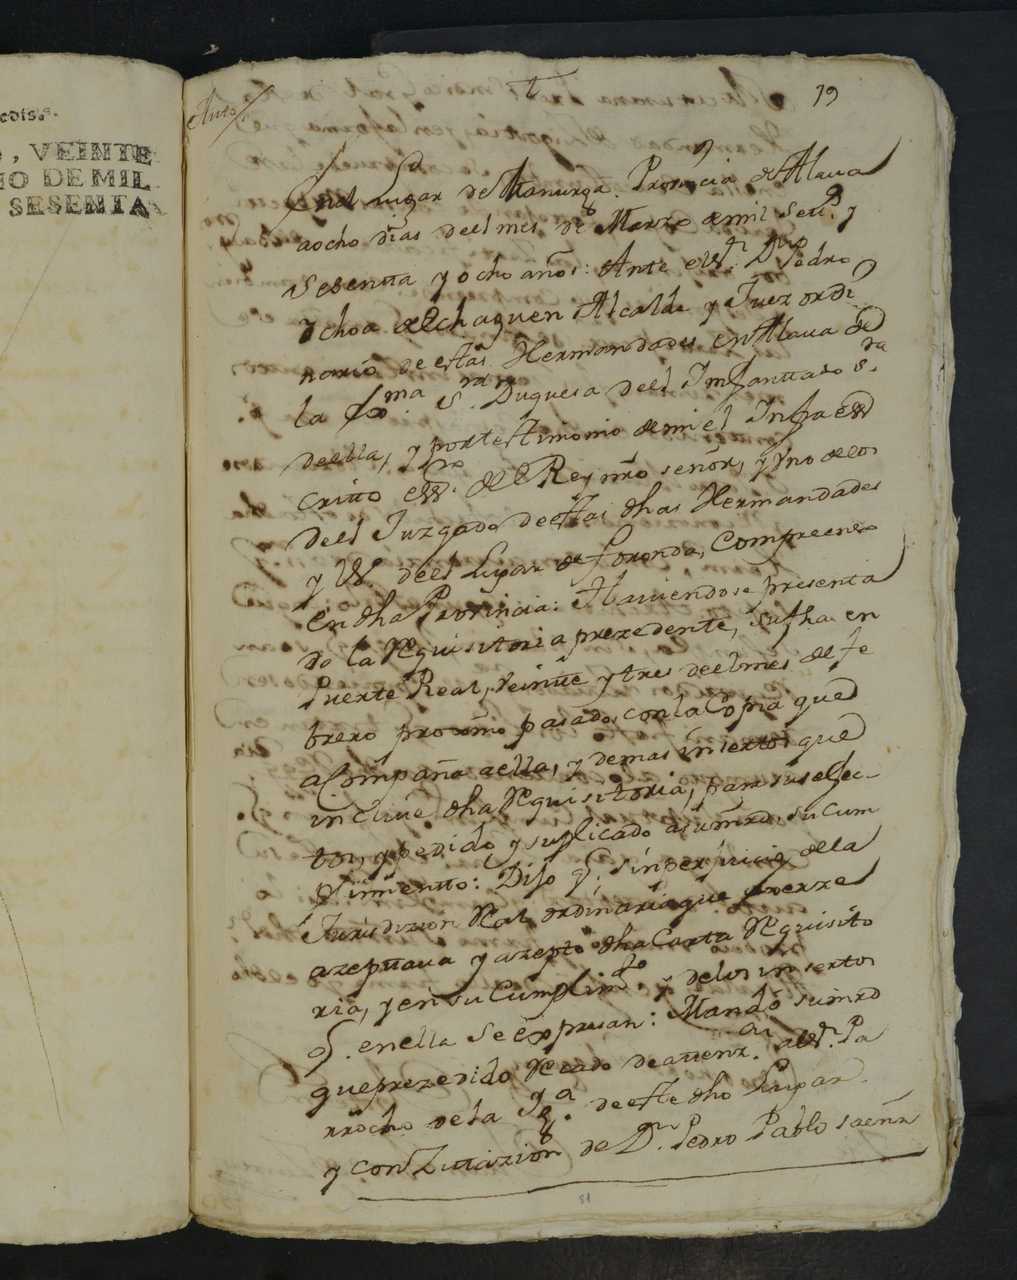 cedis.
, VEINTE
ÑO DE MIL
SESENTA
Auto/
19
En el lugar de Manurga Provincia de Alava
a ocho dias de el mes de Marzo de mil setz.s y
Sesenta y ocho años: Ante el S.r D.n Pedro
Ochoa de Echaguen Alcalde y Juez ordi
nario de estas Hermandades en Alava de
la Ex.ma S.ra Duquesa del Infantado S.ra
de ella, y por testimonio de mi el Infraes
cripto ess.no del Rey nro señor, y Uno de los
del Juzgado de estas dhas Hermandades
y Vz.o del Lugar de foronda, Compreenso
en dha Provincia: Haviendose presenta
do la Requisitoria prezedente, su fha en
Puerte Real, Veinte y tres de el mes de fe
brero proximo pasado, con la Copia que
acompaña a ella, y demas insertos que
incluie dha Requisitoria, para sus efec-
tos, y pedido y suplicado a su mrd, su cum
plimiento: Dijo q.e sin perjuicio de la
Jurisdizion Real ordinaria que exerze
azeptava y azepto dha Carta Requisito
ria, y en su Cumplim.to y de los insertos
q.e en ella se expresan: Mandó su mrd
que prezedido Recado de atenz.on al S.r Pa
rrocho de la Yg.a de este dho Lugar
y con Zitazion de D.n Pedro Pablo Saenz
51